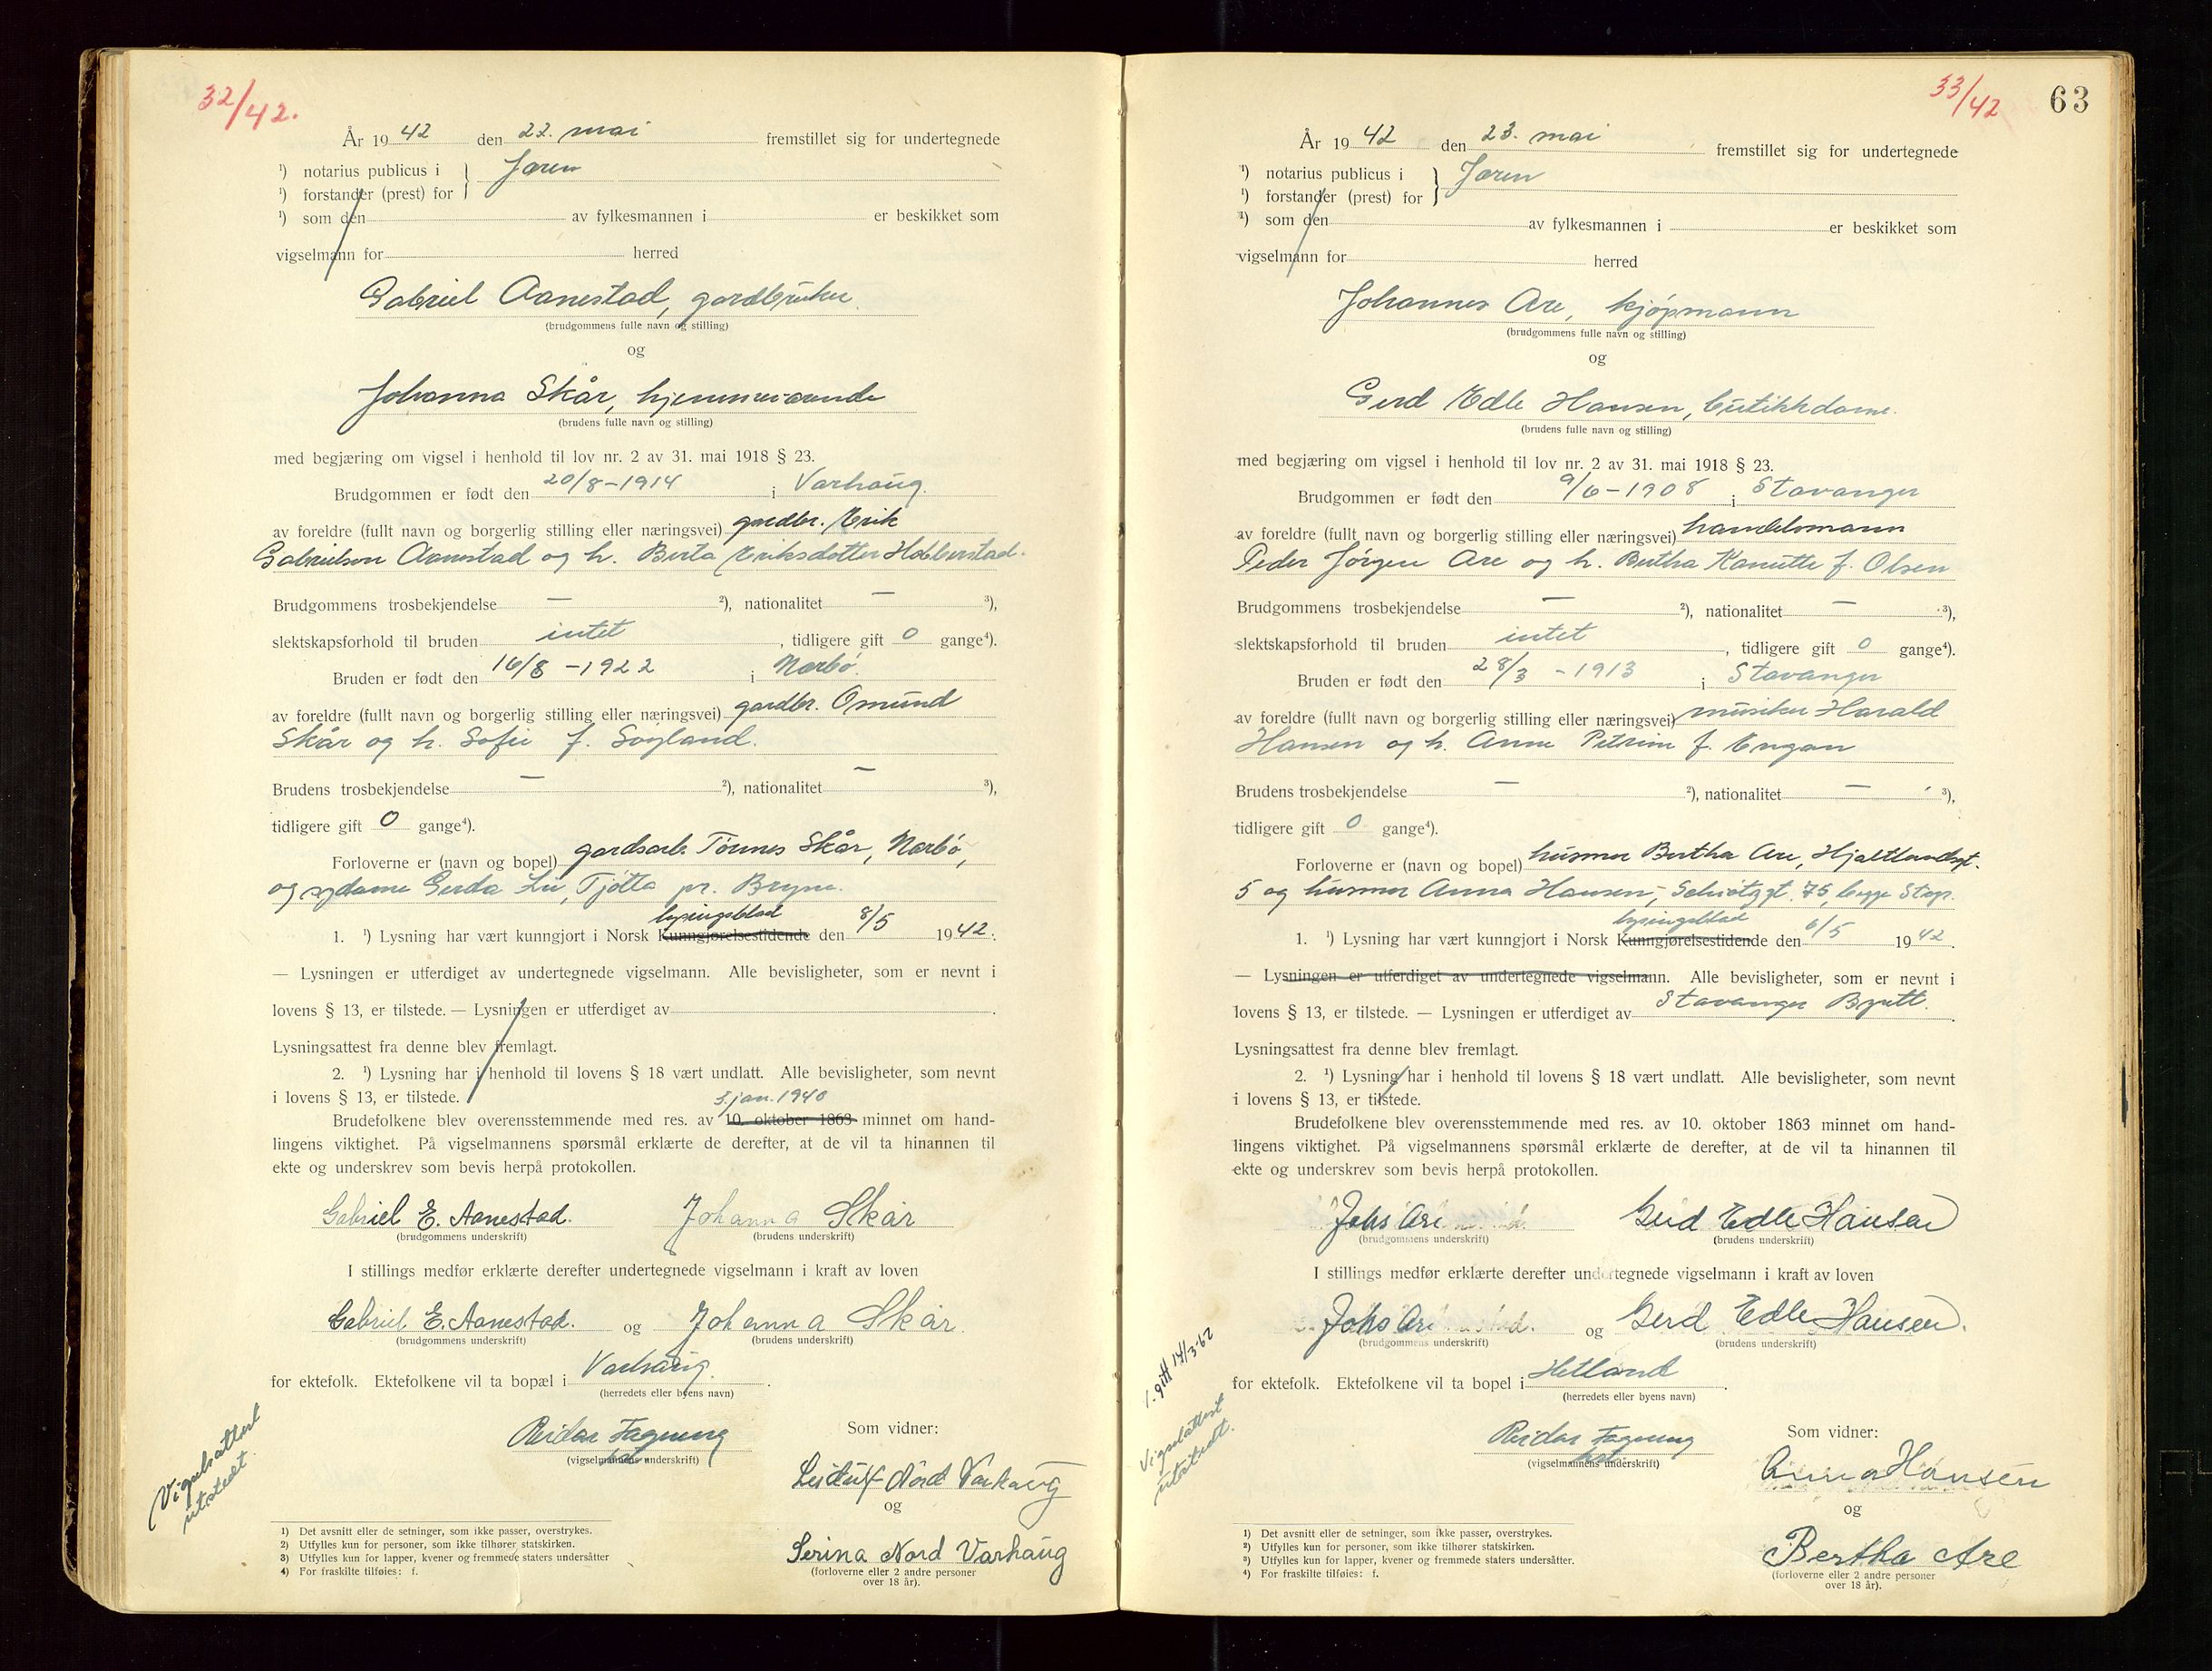 32/42.
År 19 42 den 22. mai fremstillet sig for undertegnede
¹) notarius publicus i } Jæren
¹) forstander (prest) for
¹) som den av fylkesmannen i er beskikket som
vigselmann for herred
Gabriel Aanestad, gardbruker.
(brudgommens fulle navn og stilling)
og
Johanna Skår, hjemmeværende
(brudens fulle navn og stilling)
med begjæring om vigsel i henhold til lov nr. 2 av 31. mai 1918 § 23.
Brudgommen er født den 20/8-1914 i Varhaug.
av foreldre (fullt navn og borgerlig stilling eller næringsvei) gardbr. Erik
Gabrielsen Aanestad og h. Berta Eriksdotter Hobberstad.
Brudgommens trosbekjendelse — ²), nationalitet — ³),
slektskapsforhold til bruden intet, tidligere gift 0 gange⁴).
Bruden er født den 16/8-1922 i Nærbø.
av foreldre (fullt navn og borgerlig stilling eller næringsvei) gardbr. Omund
Skår og h. Sofie f. Søyland.
Brudens trosbekjendelse — ²), nationalitet — ³),
tidligere gift 0 gange⁴).
Forloverne er (navn og bopel) gardsarb. Tønnes Skår, Nærbø,
og sydame Gerda Lie, Tjøtta pr. Bryne.
lysingsblad
1. ¹) Lysning har vært kunngjort i Norsk Kunngjørelsestidende den 8/5 1942.
— Lysningen er utferdiget av undertegnede vigselmann. Alle bevisligheter, som er nevnt i
lovens § 13, er tilstede. — Lysningen er utferdiget av
Lysningsattest fra denne blev fremlagt.
2. ¹) Lysning har i henhold til lovens § 18 vært undlatt. Alle bevisligheter, som nevnt
i lovens § 13, er tilstede.
3. jan. 1940
Brudefolkene blev overensstemmende med res. av 10. oktober 1863 minnet om hand-
lingens viktighet. På vigselmannens spørsmål erklærte de derefter, at de vil ta hinannen til
ekte og underskrev som bevis herpå protokollen.
Gabriel E. Aanestad. Johanna Skår
(brudgommens underskrift) (brudens underskrift)
I stillings medfør erklærte derefter undertegnede vigselmann i kraft av loven
Gabriel E. Aanestad. og Johanna Skår.
(brudgommens underskrift) (brudens underskrift)
for ektefolk. Ektefolkene vil ta bopæl i Varhaug.
(herredets eller byens navn)
Vigselsattest
utstedt.
Reidar Fagnung
(vigselmannens underskrift)
Som vidner:
Leidulf Nord Varhaug
og
Serina Nord Varhaug
(forloverne eller 2 andre personer
over 18 år).
1) Det avsnitt eller de setninger, som ikke passer, overstrykes.
2) Utfylles kun for personer, som ikke tilhører statskirken.
3) Utfylles kun for lapper, kvener og fremmede staters undersåtter
4) For fraskilte tilføies: f.
33/42
63
År 19 42 den 23. mai fremstillet sig for undertegnede
¹) notarius publicus i } Jæren
¹) forstander (prest) for
¹) som den av fylkesmannen i er beskikket som
vigselmann for herred
Johannes Are, kjøpmann
(brudgommens fulle navn og stilling)
og
Gerd Edle Hansen, butikkdame.
(brudens fulle navn og stilling)
med begjæring om vigsel i henhold til lov nr. 2 av 31. mai 1918 § 23.
Brudgommen er født den 9/6-1908 i Stavanger
av foreldre (fullt navn og borgerlig stilling eller næringsvei) handelsmann
Peder Jørgen Are og h. Bertha Kanutte f. Olsen
Brudgommens trosbekjendelse — ²), nationalitet — ³),
slektskapsforhold til bruden intet, tidligere gift 0 gange⁴).
Bruden er født den 28/3-1913 i Stavanger
av foreldre (fullt navn og borgerlig stilling eller næringsvei) musiker Harald
Hansen og h. Anne Petrine f. Engan
Brudens trosbekjendelse — ²), nationalitet — ³),
tidligere gift 0 gange⁴).
Forloverne er (navn og bopel) husmor Bertha Are, Hjaltlandsgt.
5 og husmor Anna Hansen, Schiøtzgt. 75, begge Stvgr.
lysingsblad
1. ¹) Lysning har vært kunngjort i Norsk Kunngjørelsestidende den 6/5 1942.
— Lysningen er utferdiget av undertegnede vigselmann. Alle bevisligheter, som er nevnt i
lovens § 13, er tilstede. — Lysningen er utferdiget av Stavanger Byrett.
Lysningsattest fra denne blev fremlagt.
2. ¹) Lysning har i henhold til lovens § 18 vært undlatt. Alle bevisligheter, som nevnt
i lovens § 13, er tilstede.
Brudefolkene blev overensstemmende med res. av 10. oktober 1863 minnet om hand-
lingens viktighet. På vigselmannens spørsmål erklærte de derefter, at de vil ta hinannen til
ekte og underskrev som bevis herpå protokollen.
Johs Are Gerd Edle Hansen
(brudgommens underskrift) (brudens underskrift)
I stillings medfør erklærte derefter undertegnede vigselmann i kraft av loven
Johs Are og Gerd Edle Hansen.
(brudgommens underskrift) (brudens underskrift)
for ektefolk. Ektefolkene vil ta bopel i Hetland.
(herredets eller byens navn)
1. gift 14/3-62
Vigselattest
utstedt.
Reidar Fagnung
(vigselmannens underskrift)
Som vidner:
Anna Hansen
og
Bertha Are
(forloverne eller 2 andre personer
over 18 år).
¹) Det avsnitt eller de setninger, som ikke passer, overstrykes.
²) Utfylles kun for personer, som ikke tilhører statskirken.
³) Utfylles kun for lapper, kvener og fremmede staters undersåtter.
⁴) For fraskilte tilføies: f.